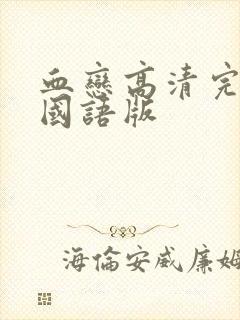 血戀高清完
國語版
海倫安威廉姆